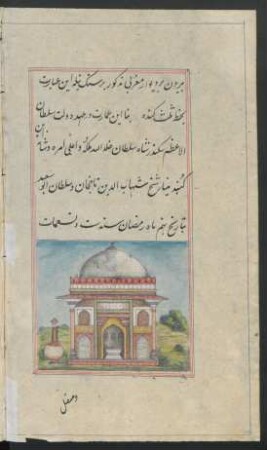 بیرون بر دیوار مغربی مذکور بر سنگ نیله این عبارت
بخط ثلث کنده بنا این عمارت در عهد دولت سلطان
الاعظم سکندر شاه سلطان خلد الله ملکه و اعلی امره و شانه
گنبد شیخ شهاب الدین تاجخان و سلطان ابو سعید
بتاریخ ماه رمضان سنه ست و تسعمات